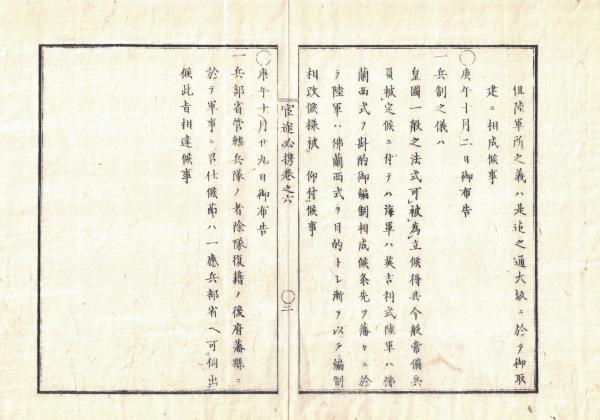 但陸軍所之義ハ是迄之通大坂ニ於テ御取
建ニ相成候事
〇庚午十月二日御布告
一兵制之儀ハ
皇國一般之法式可被為立候得共今般常備兵
員被定候ニ付テハ海軍ハ英吉利式陸軍ハ佛
蘭西式ヲ斟酌御編制相成候条先ヲ藩々ニ於
テ陸軍ハ佛蘭西式ヲ目的トシ漸ヲ以テ編制
相改候様被 仰付候事
宦途必携巻之六
〇三
〇庚午十一月廿九日御布告
一兵部省管轄兵隊ノ者除隊復籍ノ後府藩縣ニ
於テ軍事ニ召仕候節ハ一應兵部省ヘ可伺出
候此旨相達候事